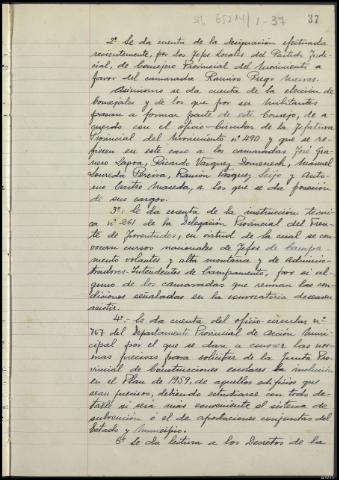 37
2º Se da cuenta de la designación efectuada
recientemente, por los Jefes locales del Partido Judi-
cial, de Consejero Provincial del Movimiento a
favor del camarada Ramiro Prego
Asimismo se da cuenta de la elección de
Concejales y de los que por ser militantes
pasan a formar parte de este Consejo, de a-
cuerdo con el oficio-Circular de la Jefatura
Provincial del Movimiento nº 490 y que se re-
fieren en este caso a los camaradas, José Ga-
Lapra, Ricardo Vázquez Domenech, Manuel
Loureda Pereira, Ramón Vázquez Seijo y Anto-
nio Castro Maseda, a los que se da posesión
de sus cargos.
3º, Se da cuenta de la instrucción técni-
ca nº 261 de la Delegación Provincial del Fren-
te de Juventudes, en virtud de la cual se con-
vocan cursos nacionales de Jefes de Campa-
mento volantes y alta montaña y de Adminis-
tradores-Intendentes de Campamento, por si al-
guno de los camaradas que reunan las con-
diciones señaladas en la convocatoria desearan
asistir.
4º- Se da cuenta del oficio circular nº
767 del Departamento Provincial de Acción Muni-
cipal por el que se dan a conocer las nor-
mas precisas para solicitar de la Junta Pro-
vincial de Construcciones escolares la inclusión
en el Plan de 1959, de aquellos edificios que
sean precisos, debiendo estudiarse con todo de-
talle si será mas conveniente el sistema de
subvención ó el de aportaciones conjuntas del
Estado y Municipio.
5º Se da lectura a los Decretos de la